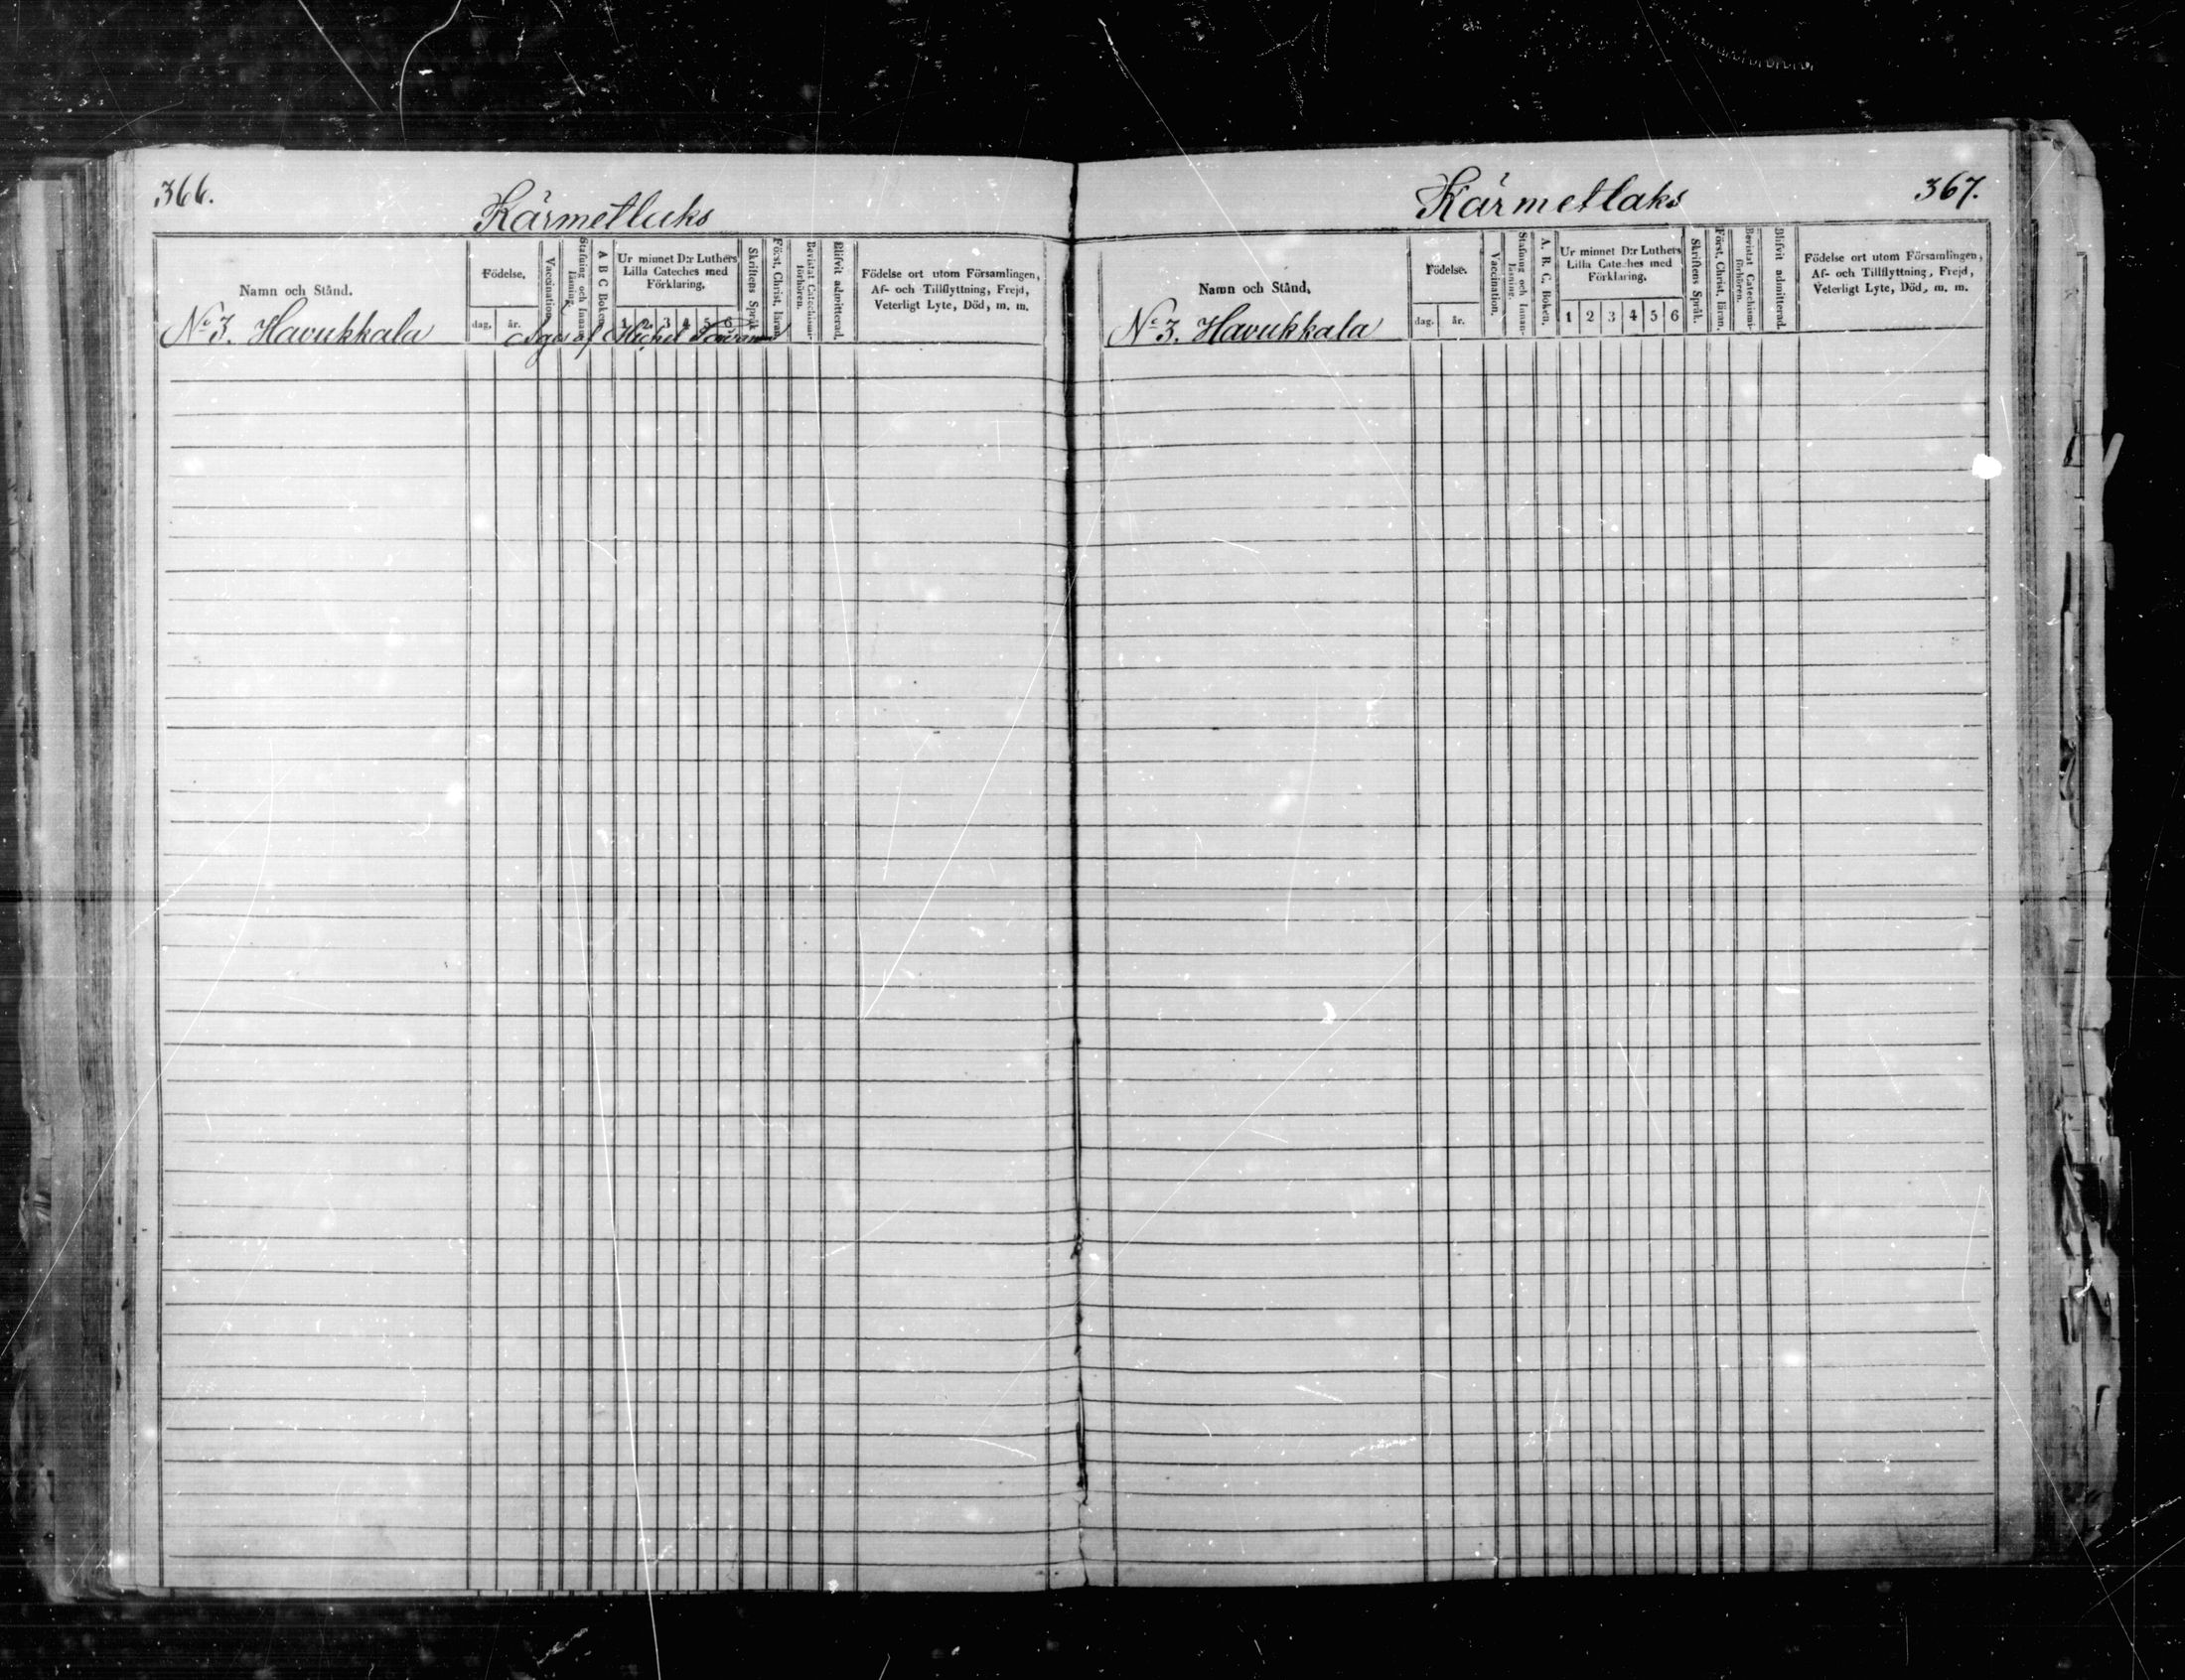 366.
Kärmetlaks
Namn och Stånd.
Födelse,
dag, år.
Vaccination.
Stafning och Innanläsning.
A B C Boken.
Ur minnet D:r Luthers
Lilla Cateches med
Förklaring.
1 2 3 4 5 6
Skriftens Språk
Först. Christ. läran
Bevistat Catechismiförhören.
Blifvit admitterad.
Födelse ort utom Församlingen,
Af- och Tillflyttning, Frejd,
Veterligt Lyte, Död, m. m.
No 3. Havukkala
äges af Michel
Kärmetlaks
367.
Namn och Stånd.
Födelse.
dag. år.
Vaccination.
Stafning och Innanläsning.
A. B. C. Boken.
Ur minnet D:r Luthers
Lilla Cateches med
Förklaring.
1 2 3 4 5 6
Skriftens Språk.
Först. Christ. läran.
Bevistat Catechismiförhören.
Blifvit admitterad.
Födelse ort utom Församlingen,
Af- och Tillflyttning, Frejd,
Veterligt Lyte, Död, m. m.
No 3. Havukkala